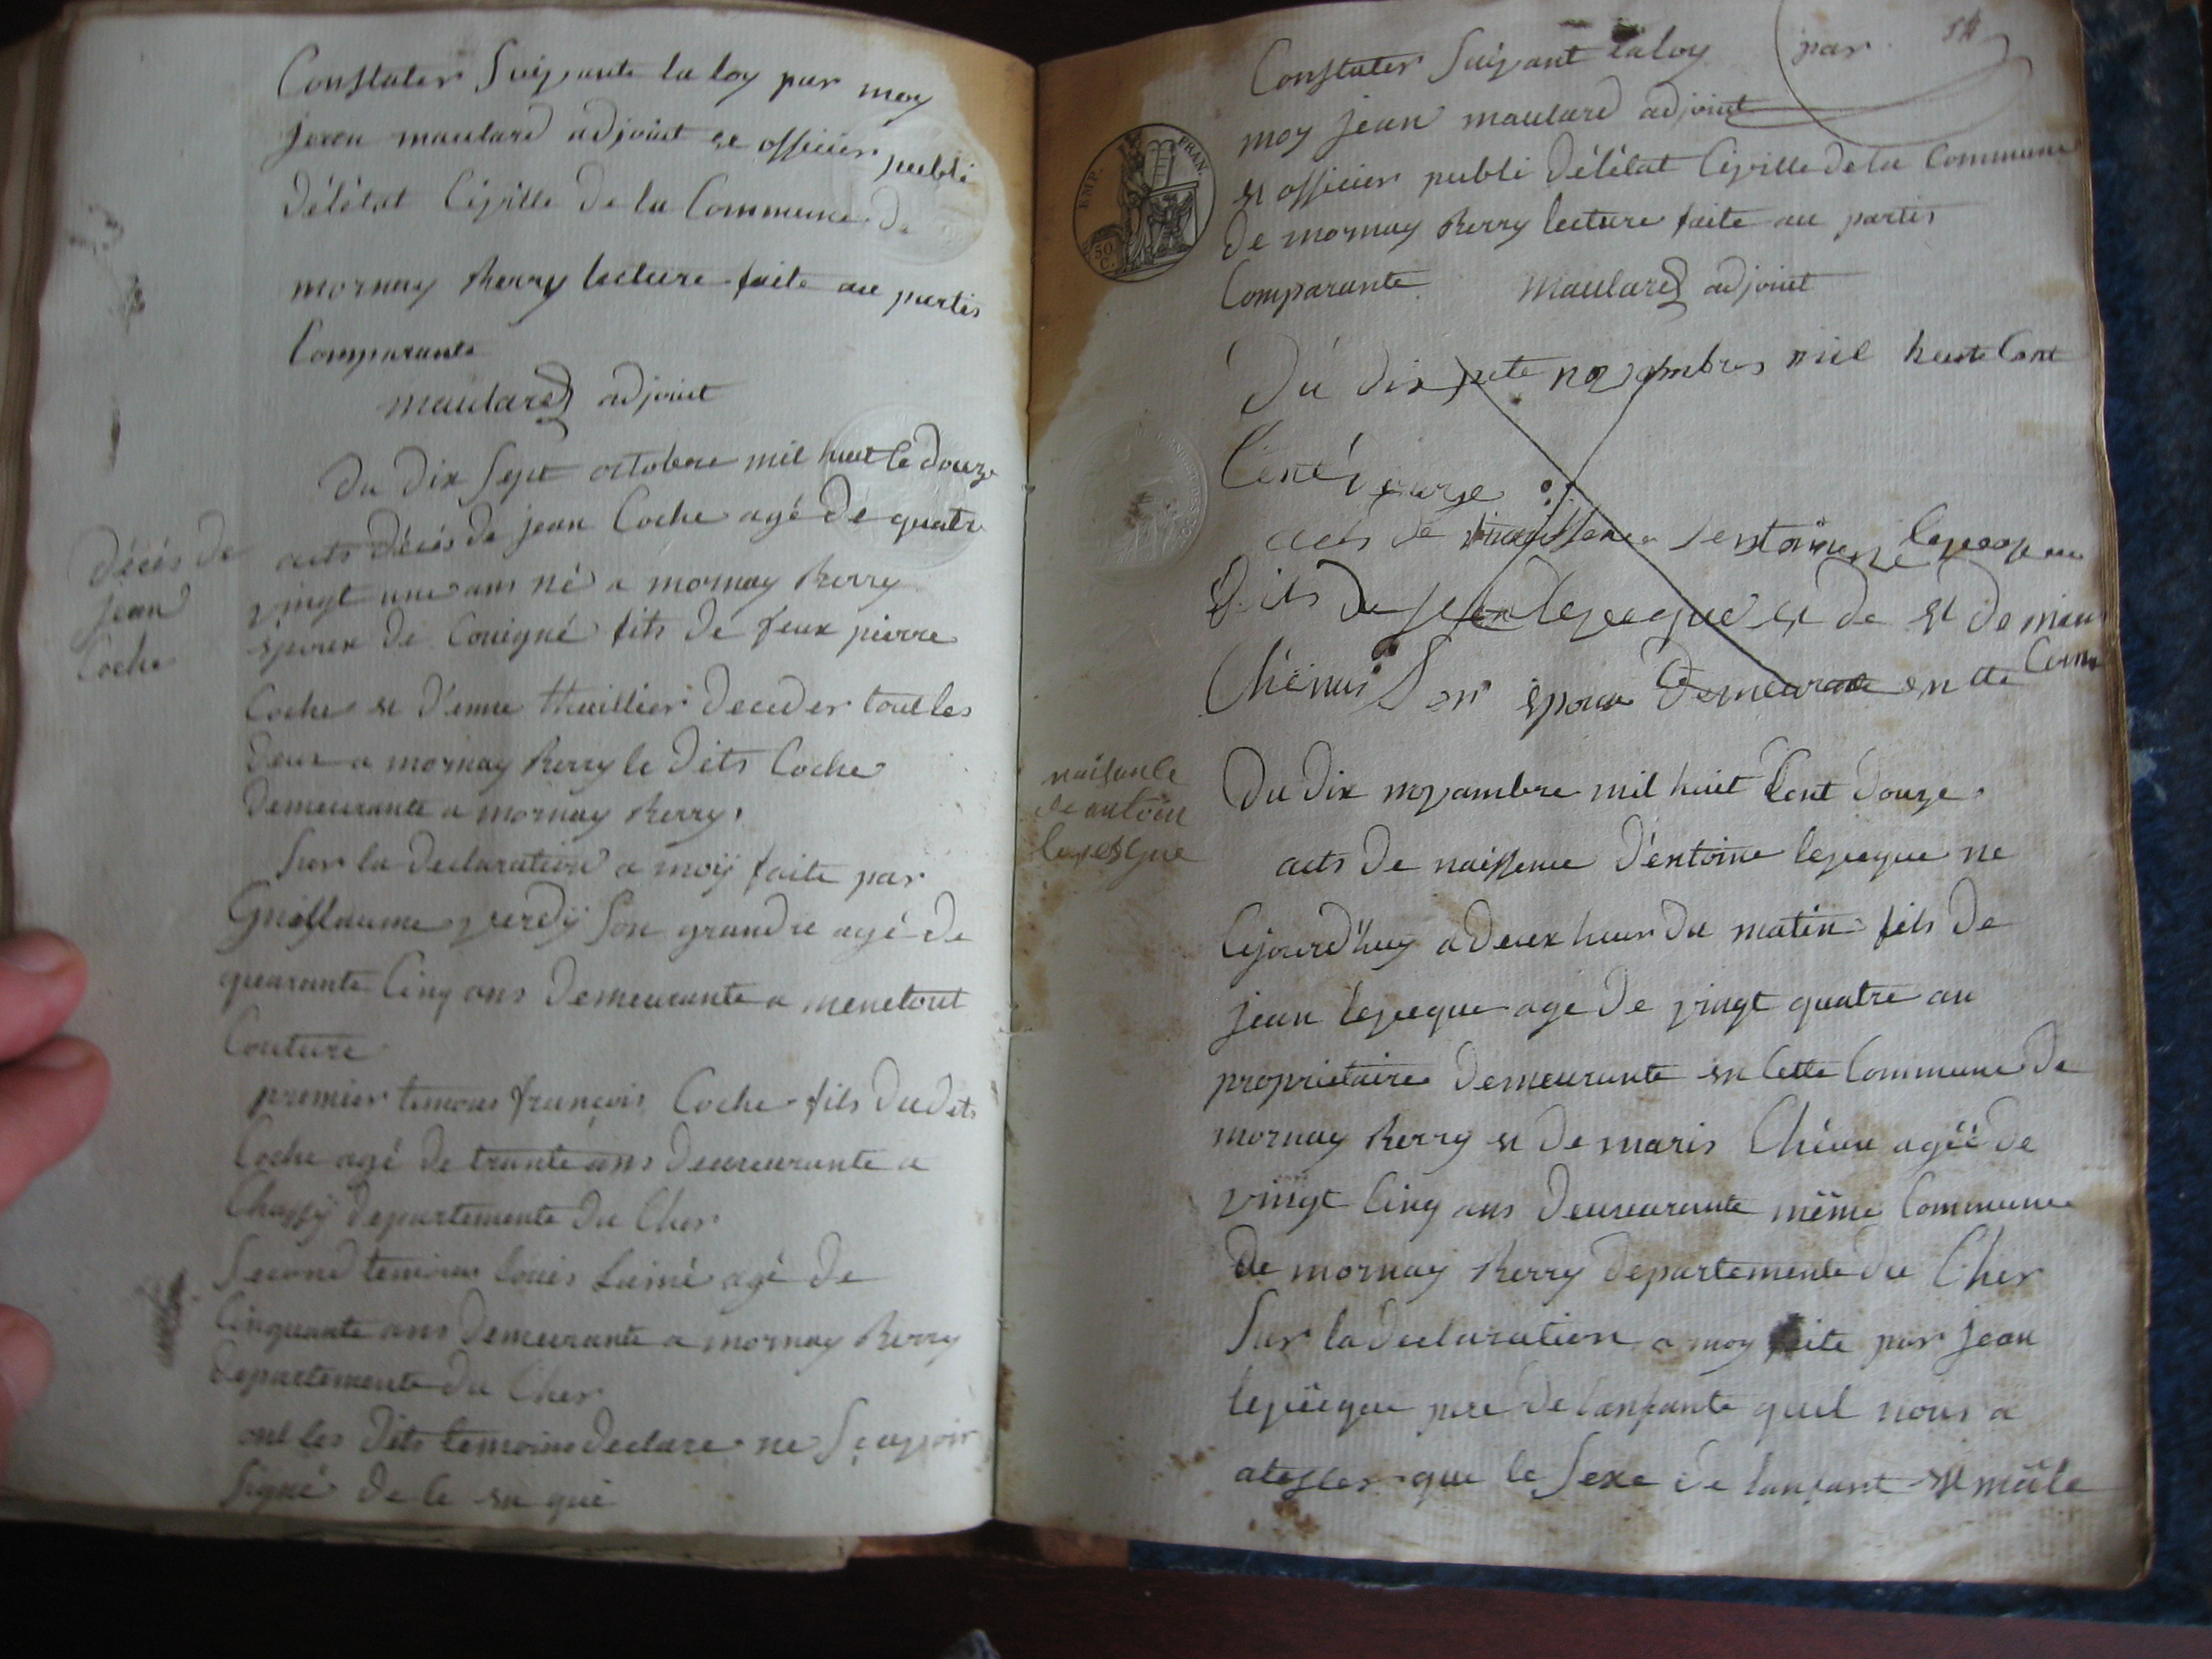 Constater Suivante la loy par moy
jean maulard adjoint et officier publi
délétat Civille de la Commune de
mornay Berry lecture faite au partis
Comparante
maulard adjoint
Du dix Sept octobre mil huit Ce douze
décés de
jean
Coche
acts décés de jean Coche agé de quatre
vingt une ans né a mornay Berry
epoux de Couigné fits de feux pierre
Coche et d'enne thuillier deceder tout les
deux a mornay Berry le dits Coche
Demeurante a mornay Berry.
Sur la declaration a moÿ faite par
Guillaume verdÿ Son grandre agé de
quarante Cinq ans Demeurante a menetout
Couture
premier temoins françois Coche fils du dits
Coche agé de trante ans demeurante a
Chassÿ departemente du Cher
Second temoins louis Laimé agé de
Cinquante ans demeurante a mornay Berry
departemente du Cher
ont les dits temoins declare ne Sçavoir
Signé de le en qui
54
Constater Suivant la loy par
moy jean maulard adjoint
et officier publi délétat Civille de la Commune
de mornay Berry lecture faite au partis
Comparante maulard adjoint
EMP. FRAN.
50 C.
Du dix novambres mil huite Cent
Cent douze
acts de naissance
fits de jean leveque et de et de
Chénus Son epoux demeurante en
naisance
de antoin
levesque
Du dix novambre mil huit Cent douze.
acts de naissence d'entoine leveque ne
Cejourd'huy a deux heur du matin fils de
jean leveque age de vingt quatre an
proprietaire demeurante en Cette Commune de
mornay Berry et de maris Chénu agéé de
vingt Cinq ans demeurante même Commune
de mornay Berry departemente du Cher
Sur la declaration a moy faite par jean
leveque pere de lanfante quel nous a
atester que le Sexe de lanfant et mâle